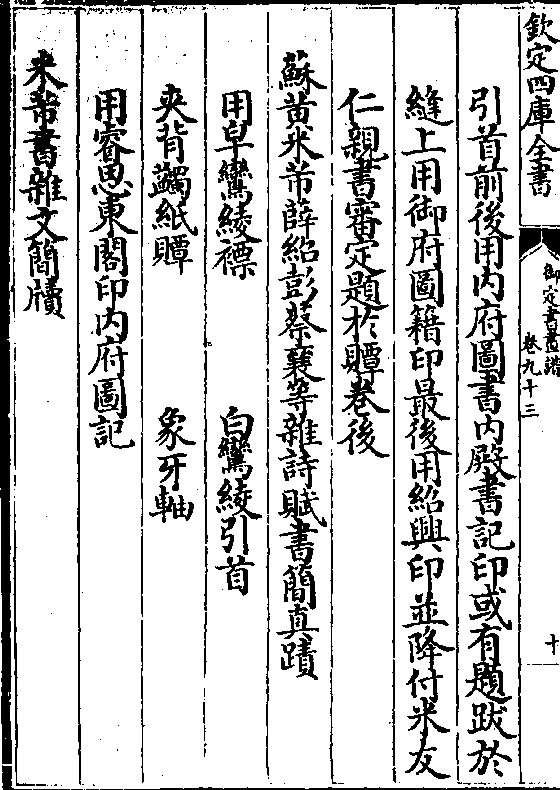 欽定四庫全書
御定書畫譜
卷九十三
十
引首前後用内府圖書内殿書記印或有題跋於
縫上用御府圖籍印最後用紹興印並降付米友
仁親書審定題於贉卷後
蘇黄米芾薛紹彭蔡襄等雜詩賦書簡真蹟
用皁鸞綾褾　白鸞綾引首
夾背蠲紙贉　象牙軸
用睿思東閣印内府圖記
米芾書雜文簡牘